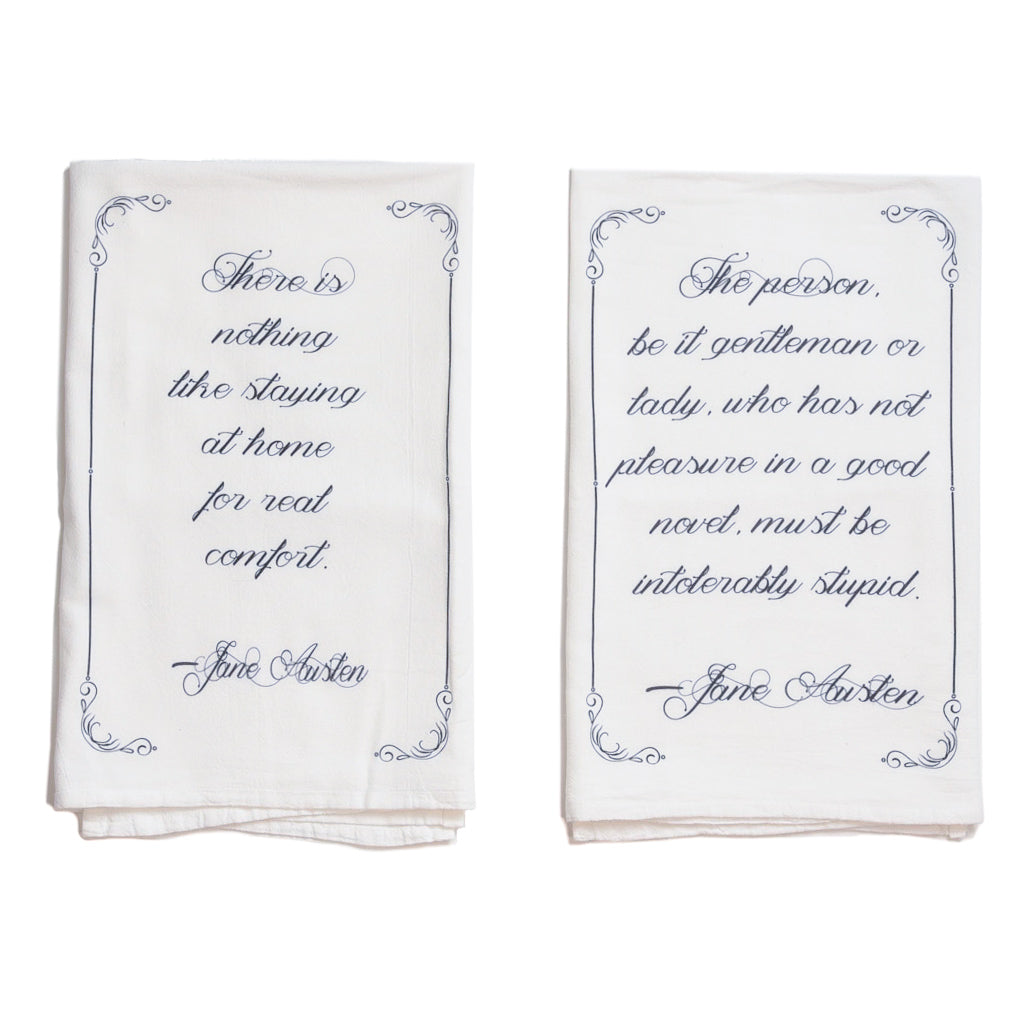 There is
nothing
like staying
at home
for real
comfort.
—Jane Austen
The person,
be it gentleman or
lady, who has not
pleasure in a good
novel, must be
intolerably stupid.
—Jane Austen